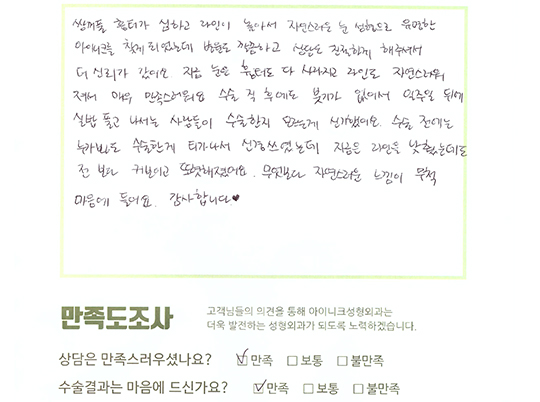 쌍꺼풀 흉터가 심하고 라인이 높아서 자연스러운 눈 성형으로 유명한
아이니크를 찾게 되었는데 병원도 깔끔하고 상담도 친절하게 해주셔서
더 신뢰가 갔어요. 지금 눈은 흉터도 다 사라지고 라인도 자연스러워
져서 매우 만족스러워요 수술 직 후에도 붓기가 없어서 일주일 뒤에
실밥 풀고 나서는 사람들이 수술한지 모르는게 신기했어요. 수술 전에는
누가봐도 수술한게 티가나서 신경쓰였는데 지금은 라인을 낮췄는데도
전 보다 커보이고 또렷해졌어요. 무엇보다 자연스러운 느낌이 무척
마음에 들어요. 감사합니다♥
만족도조사
고객님들의 의견을 통해 아이니크성형외과는
더욱 발전하는 성형외과가 되도록 노력하겠습니다.
상담은 만족스러우셨나요? ☑만족 □보통 □불만족
수술결과는 마음에 드신가요? ☑만족 □보통 □불만족